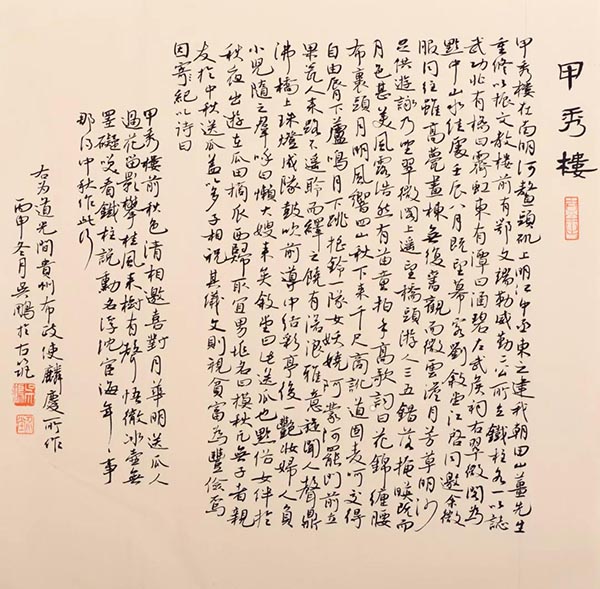 甲秀樓
甲秀樓在南明河鰲頭磯上明江中丞東之建我朝田山薑先生
重修以振文教樓前有鄂文端勒威勤二公所立鐵柱各一以誌
武功北有橋曰霽虹東有潭曰涵碧左武侯祠右翠微閣為
黔中山水佳處壬辰八月既望幕客劉敘堂江啓同邀余微
服同往雖高甍畫棟無復舊觀而微雲澹月芳草明沙
足供遊詠乃坐翠微閣上遙望橋頭游人三五錯落掩暎既而
月色甚美風露浩然有苗童拍手高歌詞曰花錦纏腰
布裹頭月明風響四山秋下來千尺高
自由唇下蘆鳴月下跳搖鈴一隊女妖嬈阿蒙阿罷門前立
果瓮人來路不遙聆而繹之饒有雅意旋聞人聲鼎
沸橋上珠燈成隊鼓吹前導中結彩亭後一艷妝婦人負
小兒隨之群呼曰懶大嫂來矣敘堂曰此送瓜也黔俗女伴於
秋夜出遊在瓜田摘瓜而歸取宜男兆名曰模秋凡無子者親
友於中秋送瓜蓋以多子相祝其儀文則視貧富為豐儉焉
因寄紀以詩曰
甲秀樓前秋色清相邀喜對月華明送瓜人
過花留影攀桂風來樹有聲悟徹冰壺無
罣礙看鐵柱說勳名浮沈宦海年年事
那得中秋作此行
右為道光間貴州布政使麟慶所作
丙申冬月吳鵬於古筑